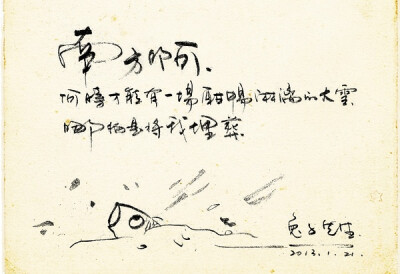 南方啊、
何時才能有一場酣暢淋漓的大雪
哪怕是將我埋葬
兔子先生
2013.1.21.